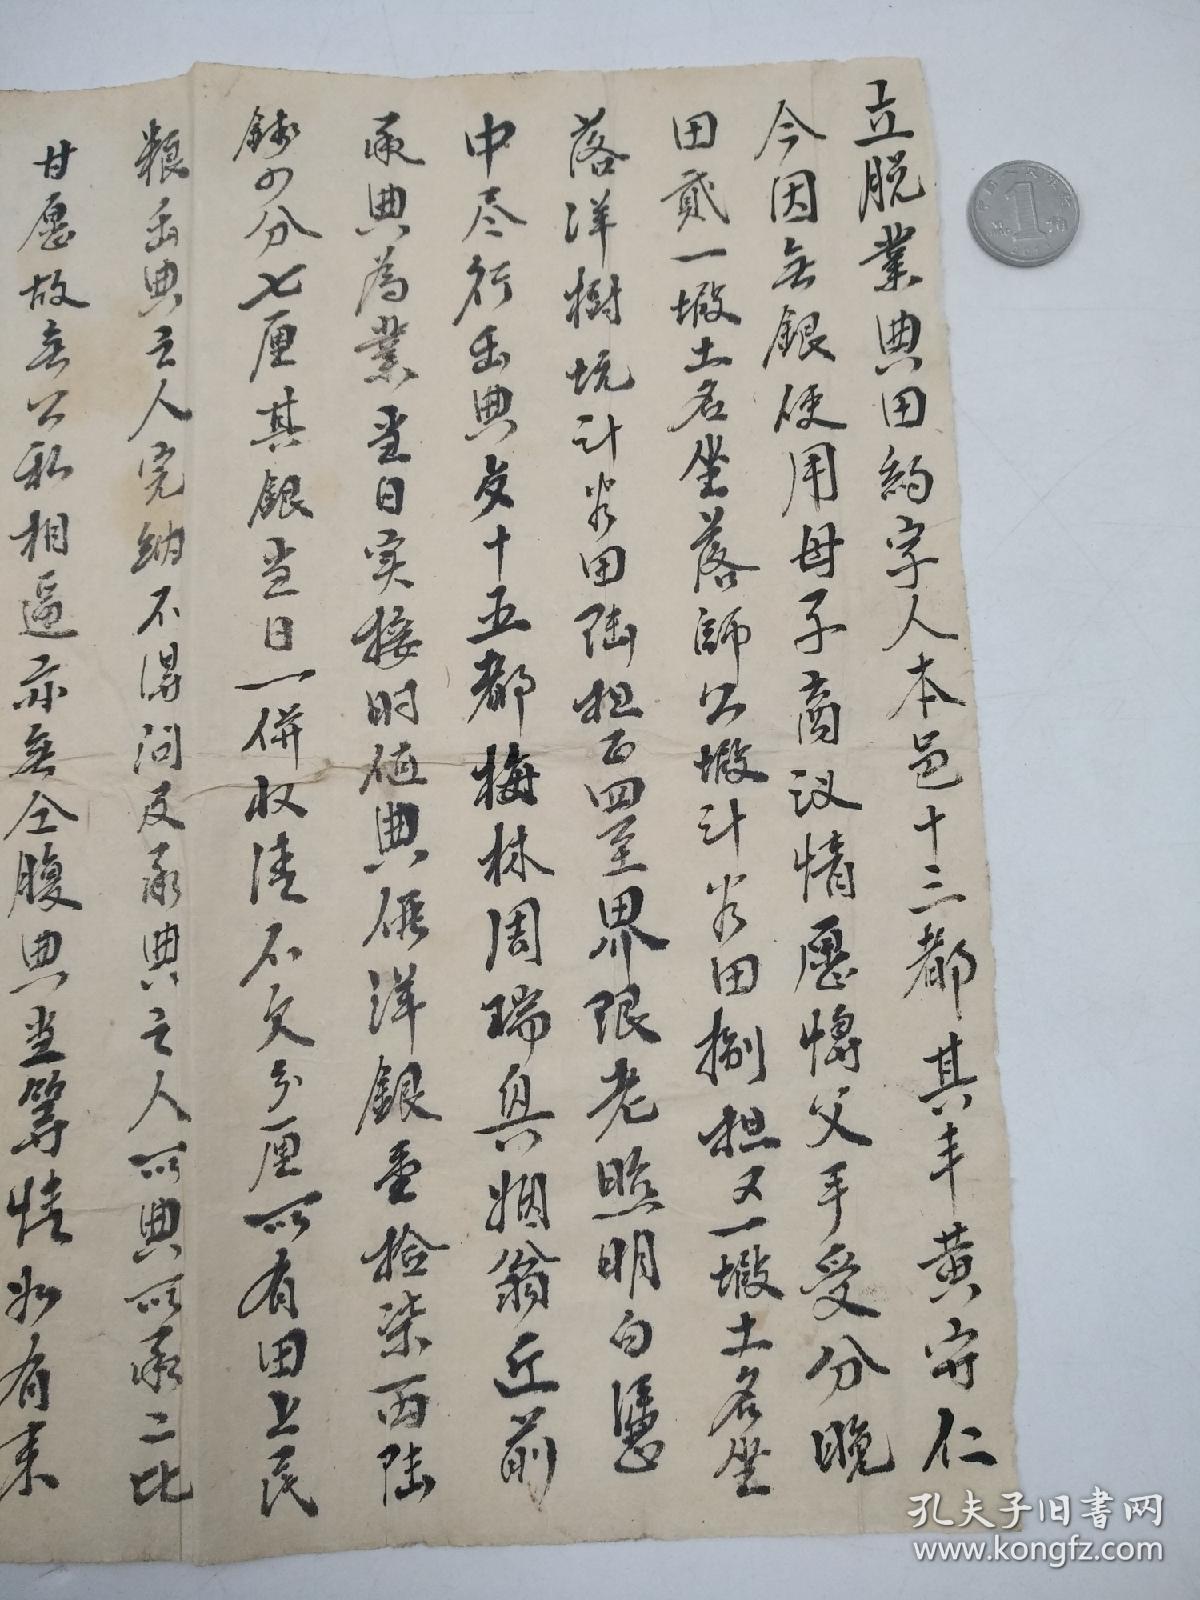 立脱業典田約字人本邑十三都其丰黄守仁
今因無銀使用母子商议情愿将父手受分晚
田貳一塅土名坐落師公塅計谷田捌担又一塅土名坐
落洋樹坑計谷田陆担正四至界限老照明白憑
中尽行出典与十五都梅林周瑞興姻翁近前
承典為業当日实接时值典価洋銀壹拾柒両陆
錢四分七厘其銀当日一併收清不欠分厘所有田上民
粮出典之人完納不得问及承典之人所典所承二比
甘愿故無公私相逼亦無仝腹典当等情如有来
1
孔夫子旧书网
www.kongfz.com